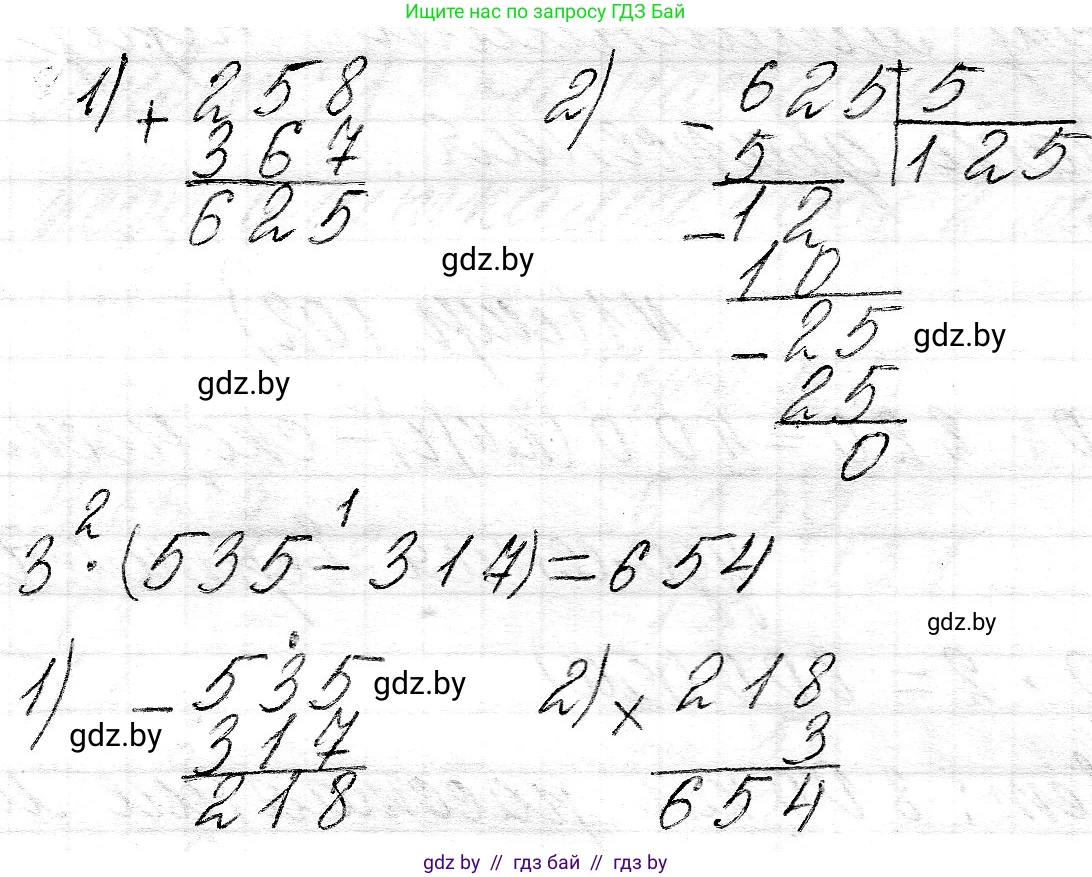 Ищите нас по запросу ГДЗ Бай
1) + 258
367
625
2) - 625 | 5
5 | 125
- 12
10
- 25
25
0
gdz.by
gdz.by
gdz.by
2 1
3 · (535 - 317) = 654
gdz.by
1) - 535
317
218
gdz.by
gdz.by
2) × 218
3
654
gdz by // гдз бай // гдз by